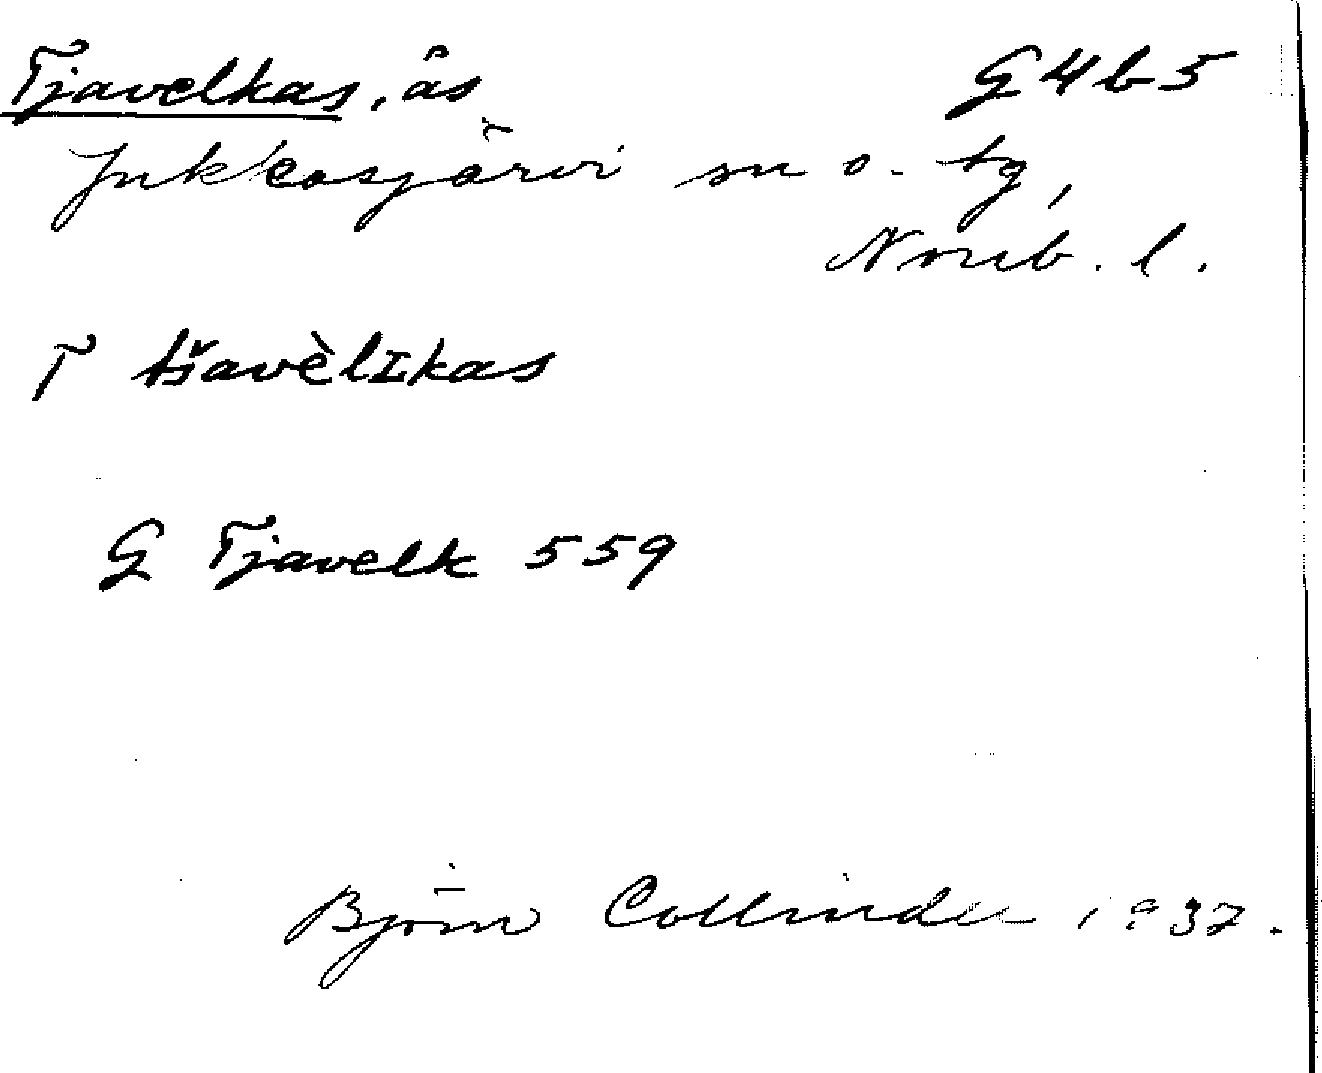 Tjavelkas, ås G4b5
Jukkasjärvi sn o. tg,
Norrb. l.
T tšavèlɪkas
G Tjavelk 559
Björn Collinder 1937.